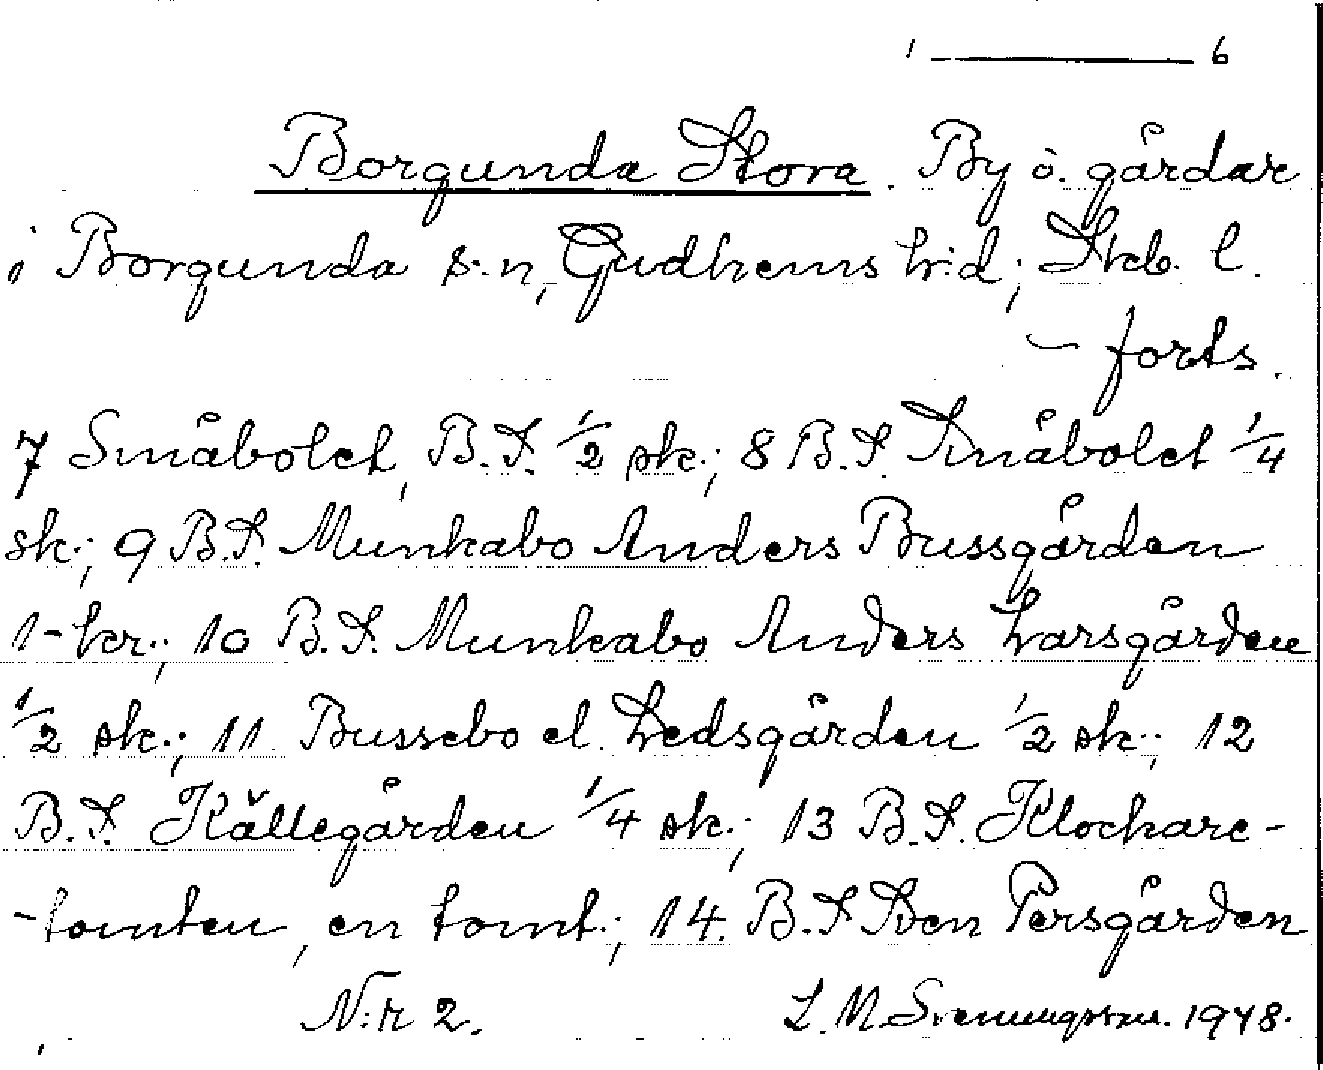 1 ——— 6
Borgunda Stora. By o. gårdar
i Borgunda s:n, Gudhems h:d; Skb. l.
– forts.
7 Småbolet, B.S. 1/2 sk.; 8 B.S. Småbolet 1/4
sk.; 9 B.S. Munkabo Anders Bussgården
1-kr.; 10 B.S. Munkabo Anders Larsgården
1/2 sk.; 11 Bussebo el. Ledsgården 1/2 sk.; 12
B.S. Källegården 1/4 sk.; 13 B.S. Klockare-
-tomten, en tomt.; 14. B.S Sven Persgården
N:r 2. L. M. Svenungsson. 1948.